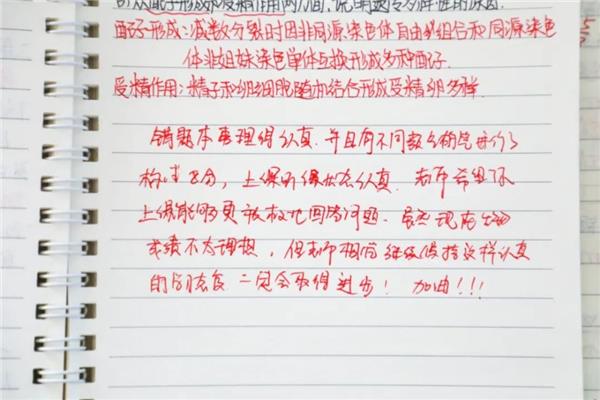 的原因.
配子形成:减数分裂时因非同源染色体自由组合和同源染色
体非姐妹染色单体互换形成多种配子.
受精作用:精子和卵细胞随机结合形成受精卵多样.
错题本整理得认真.并且用不同颜色的笔进行了
区分,上课听课状态认真.老师希望你
上课能够更积极地回答问题.虽然现在生物
成绩不太理想,但老师相信继续保持这样认真
的学习状态 一定会取得进步! 加油!!!